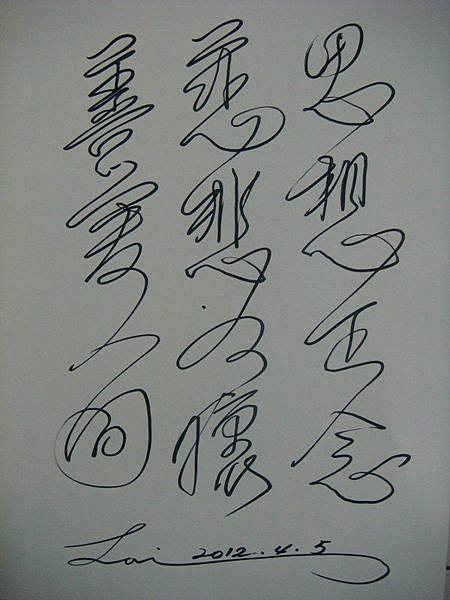 思想正念
慈悲為懷
善愛人間
Lai 2012.4.5